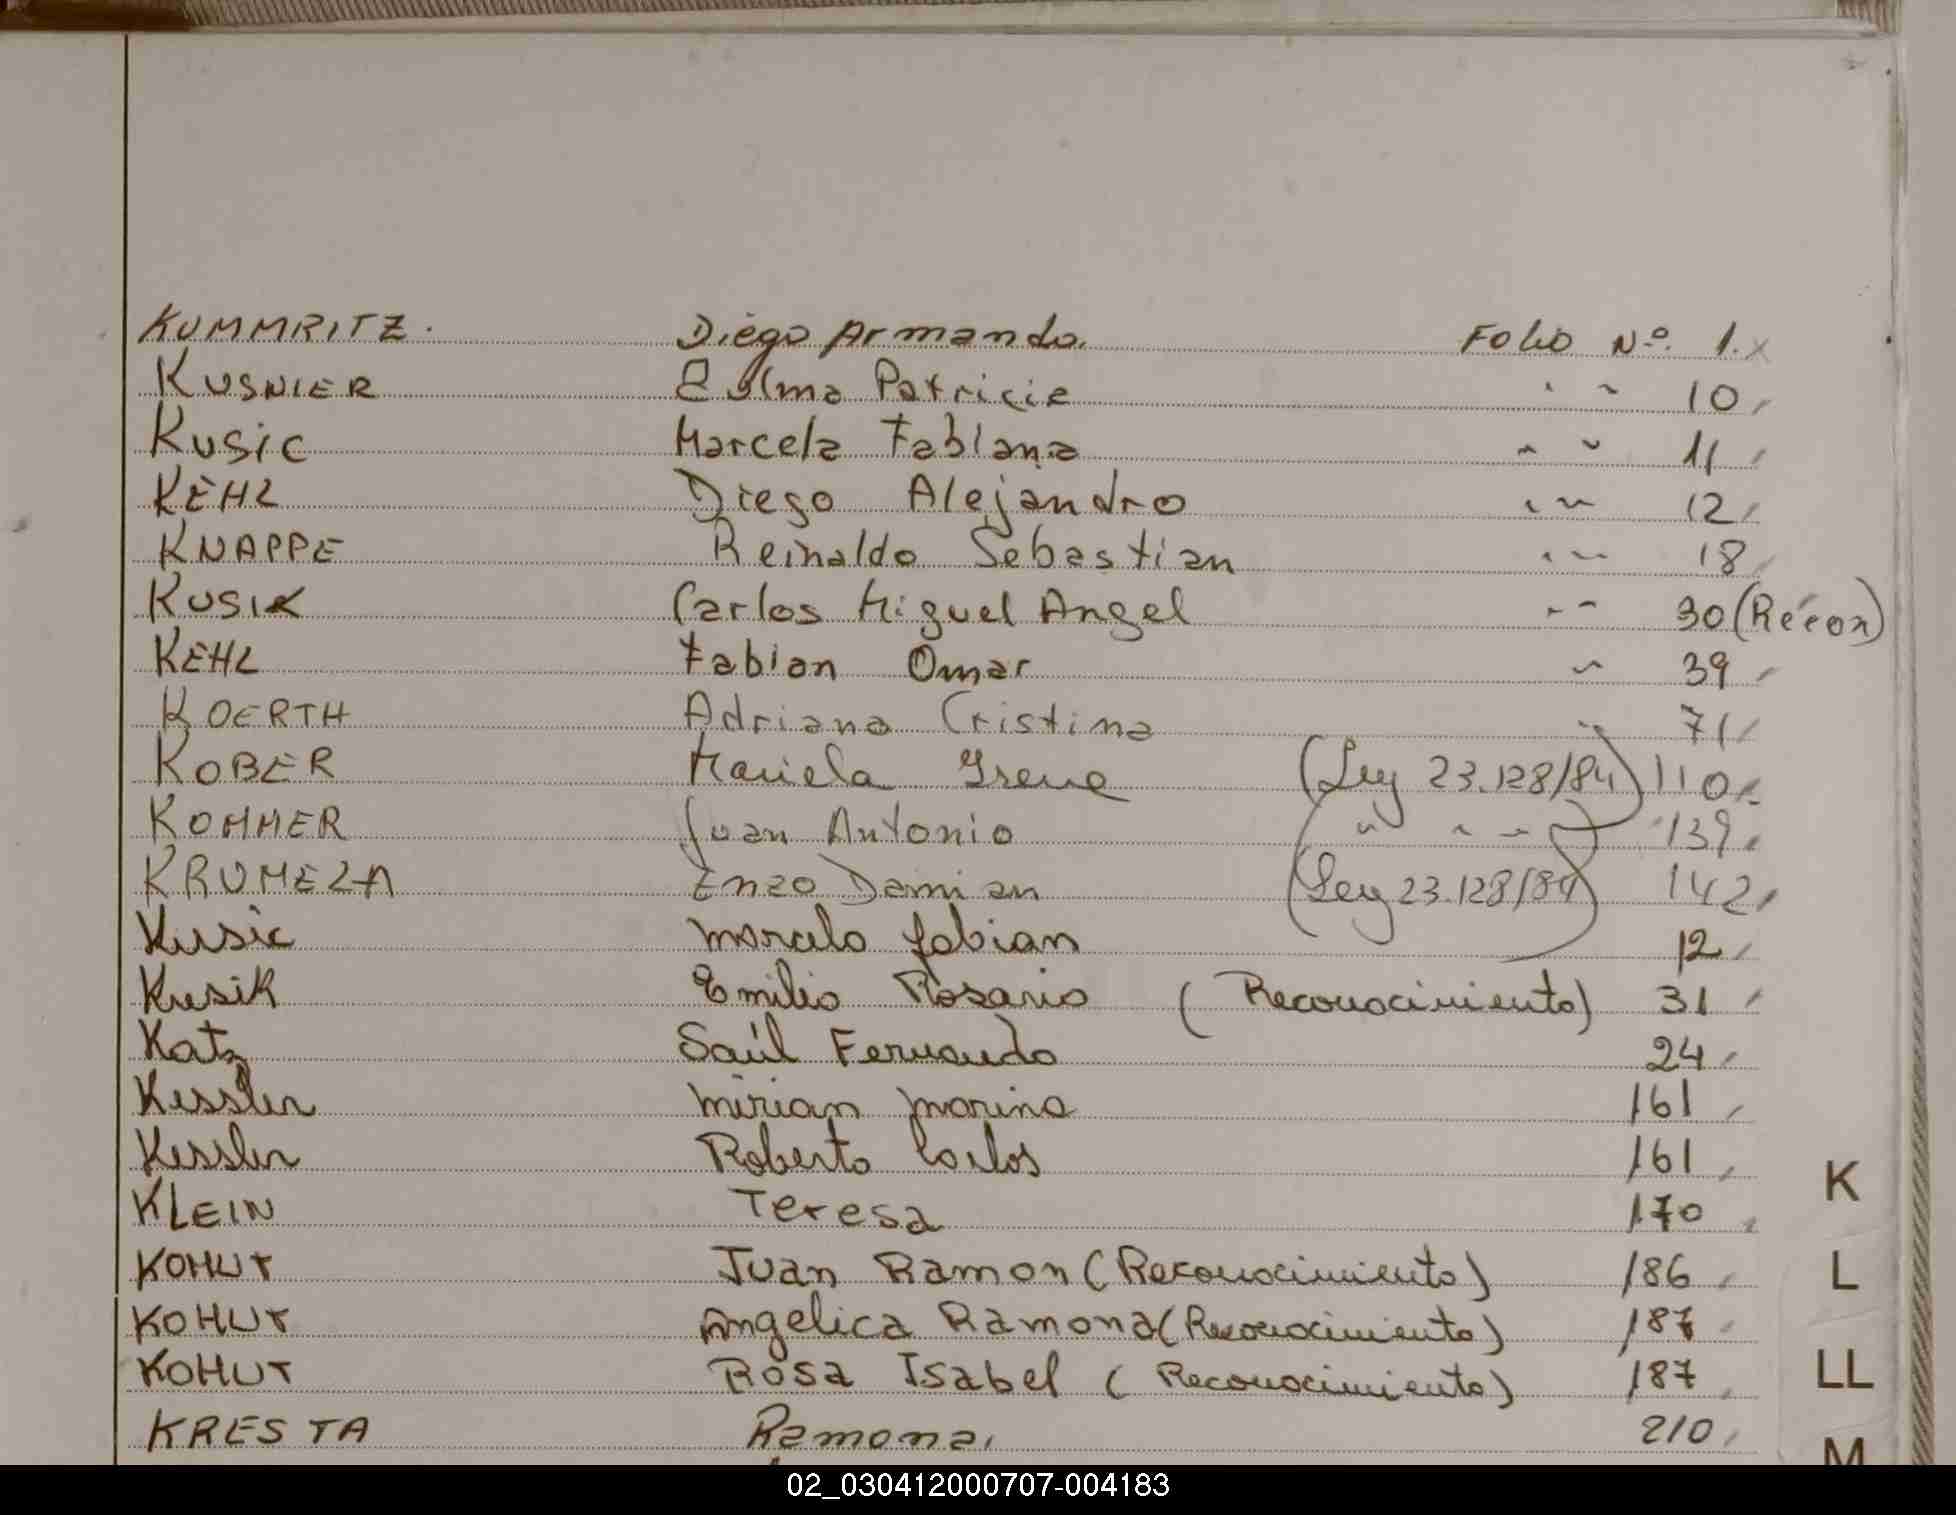 KUMMRITZ. Diego Armando. Folio Nº. 1. x
KUSNIER Zulma Patricia " " 10,
KUSIC Marcela Fabiana " " 11
KEHL Diego Alejandro " " 12
KNAPPE Reinaldo Sebastian " " 18
KUSIK Carlos Miguel Angel " " 30 (Recon)
KEHL Fabian Omar " 39
KOERTH Adriana Cristina " 71
KOBER Mariela Irene (Ley 23.128/84) 110
KOMMER Juan Antonio ( " " " ) 139
KRUMELA Enzo Damian (Ley 23.128/84) 142
Kusic Marcelo Fabian 12
Kusik Emilio Rosario (Reconocimiento) 31
Katz Saúl Fernando 24
Kessler Mirian Marina 161
Kessler Roberto Carlos 161
KLEIN Teresa 170
KOHUT Juan Ramon (Reconocimiento) 186
KOHUT Angelica Ramona (Reconocimiento) 187
KOHUT Rosa Isabel (Reconocimiento) 187
KRESTA Ramona, 210
K
L
LL
M
02_030412000707-004183